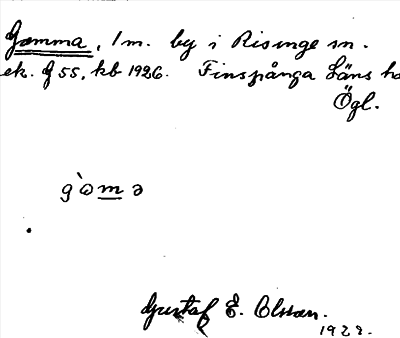 Gamma, /m. by i Risinge sn.
ek. f 55, kb 1926. Finspånga Läns hd
Ögl.
g`ɷmə
Gustaf E. Olsson.
1928.